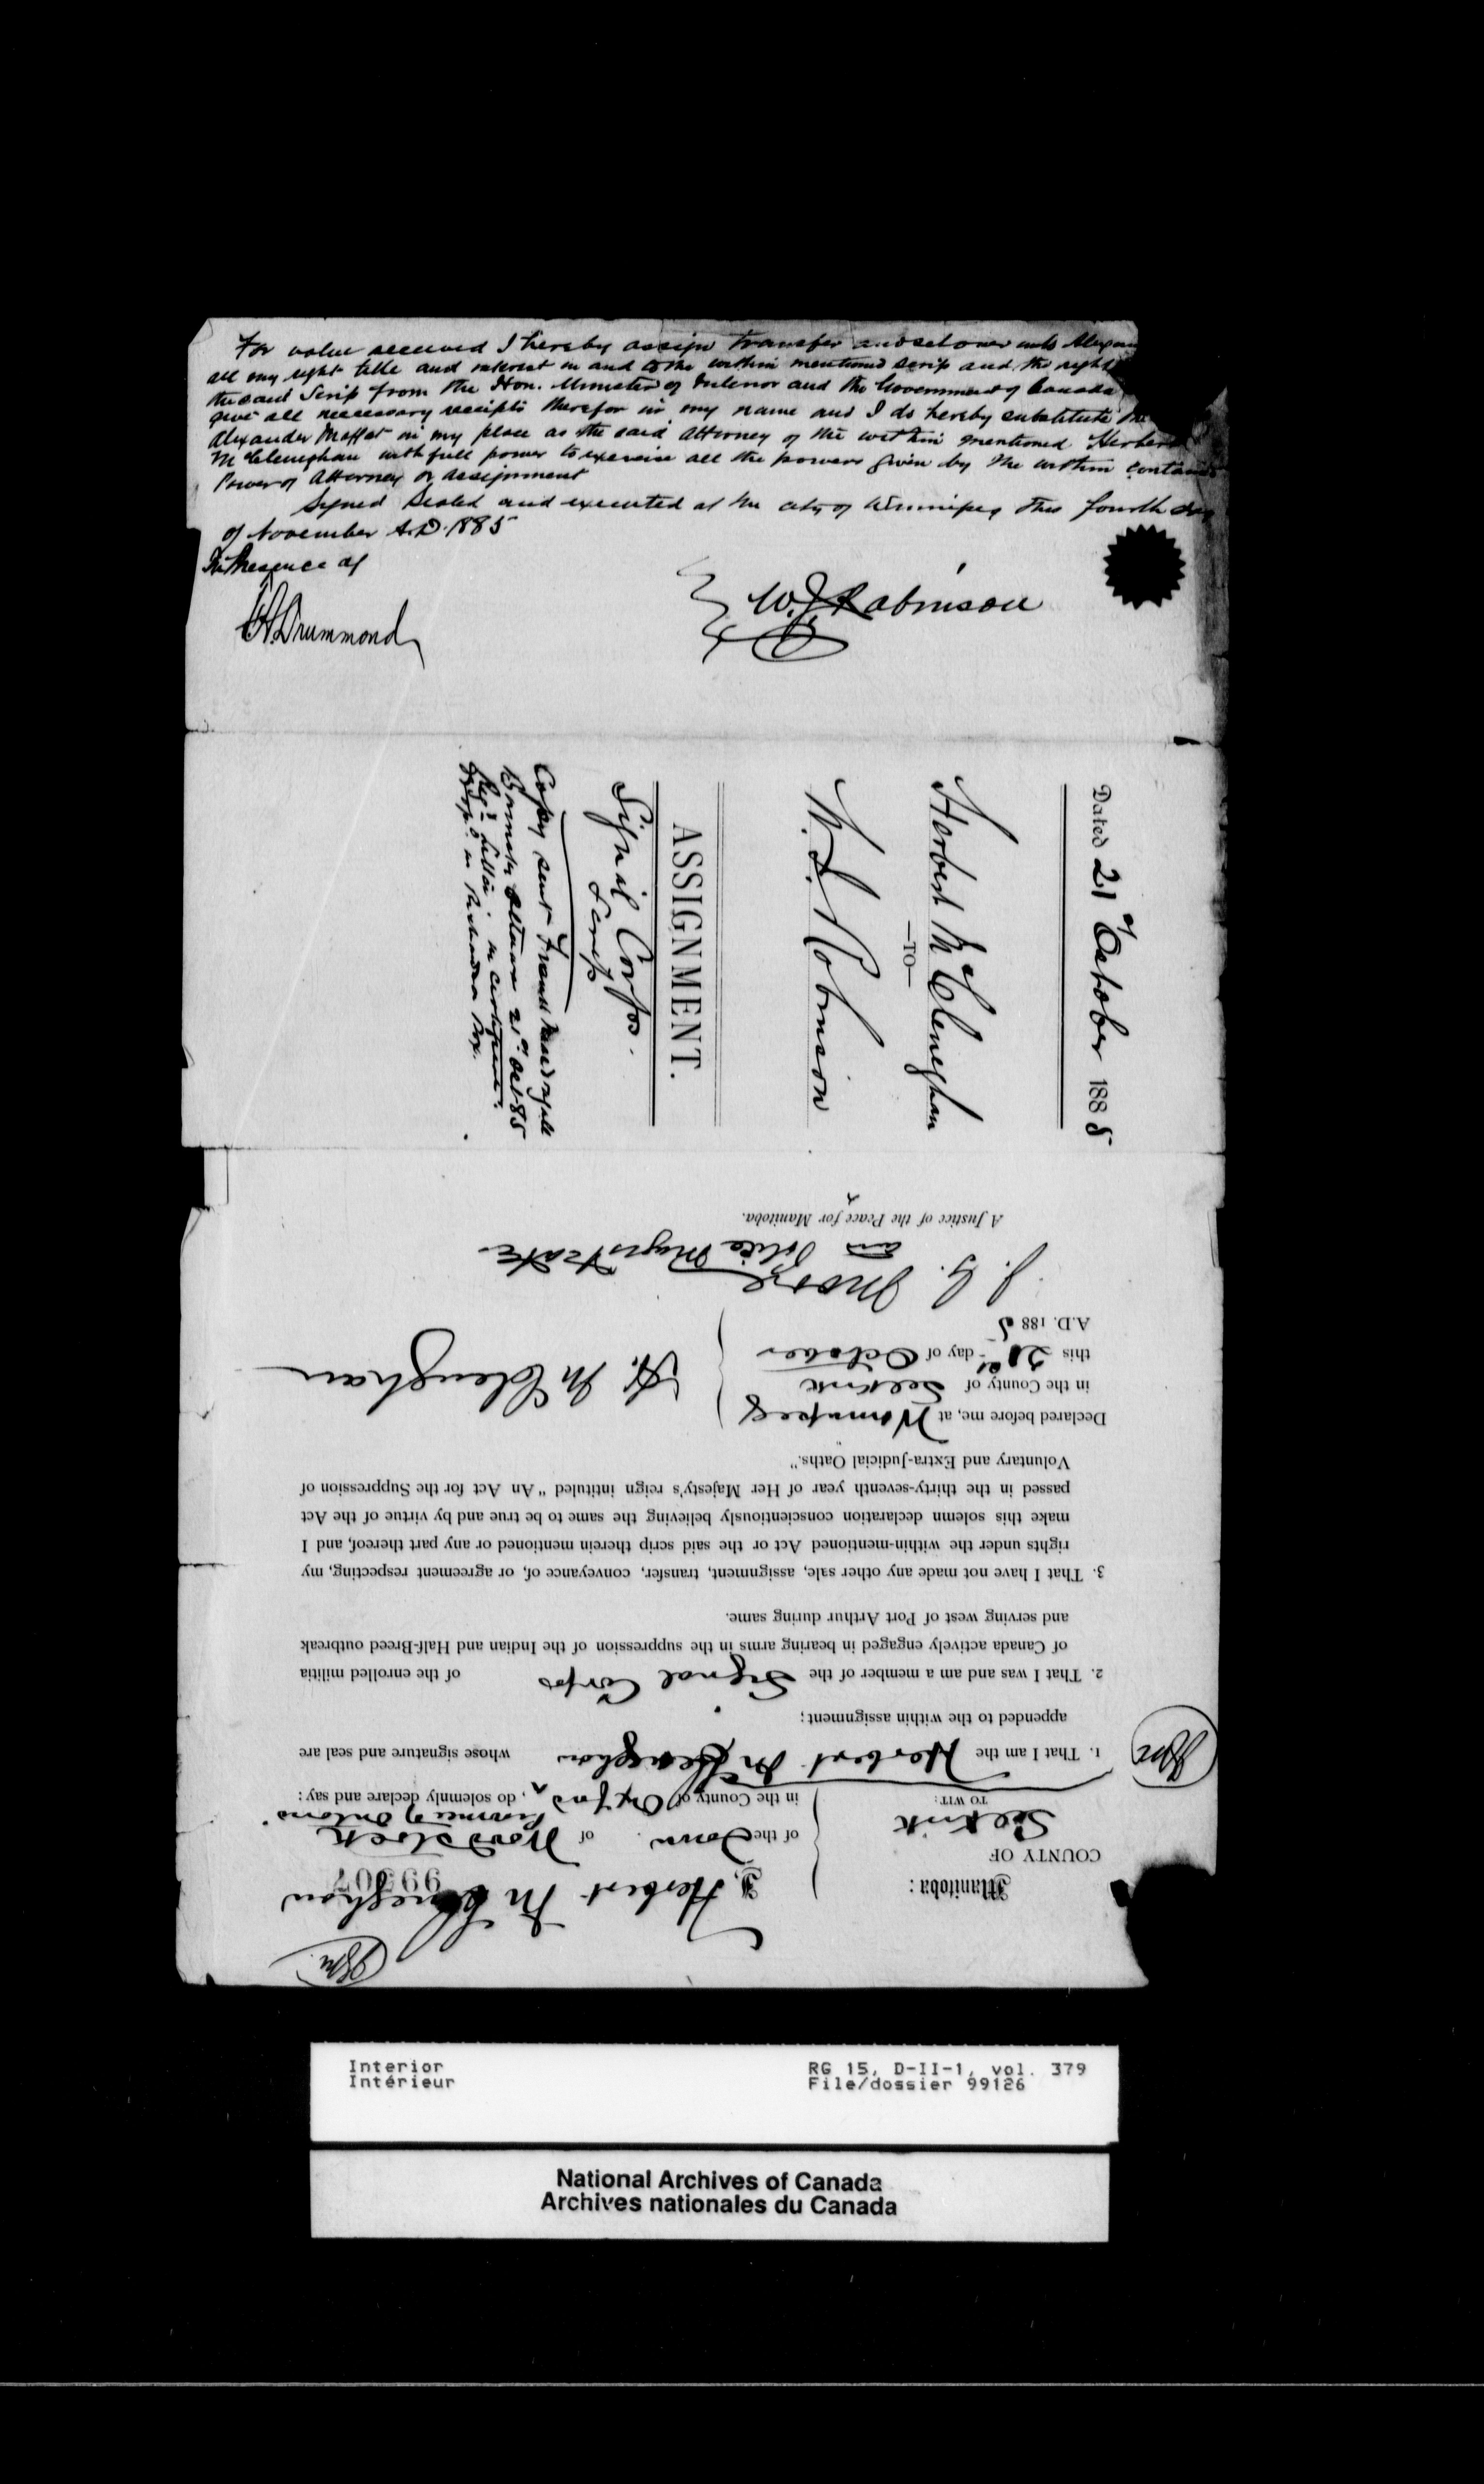 For value received I hereby assign transfer and set over unto
all my right title and interest in and to the within mentioned scrip and the right
the said Scrip from the Hon. Minister of Interior and the Government of Canada
give all necessary receipts therefor in my name and I do hereby substitute the
Alexander Moffat in my place as the said attorney of the within mentioned Herbert
McClenghan with full power to exercise all the powers given by the within contained
Power of Attorney or assignment
Signed Sealed and executed at the city of Winnipeg this fourth day
of November A.D. 1885
In Presence of
Drummond
W.J. Robinson
Dated 21st October 1885
Herbert McClenghan
—TO—
W. J. Robinson
ASSIGNMENT.
Signal Corps.
Scrip
Copy sent
Ottawa 21st Oct 85
Manitoba:
COUNTY OF
Selkirk
TO WIT:
I, Herbert McClenghan
99507
of the Town of Woodstock
Province of Ontario
in the County of Oxford, do solemnly declare and say:
1. That I am the Herbert McClenghan whose signature and seal are
appended to the within assignment;
2. That I was and am a member of the Signal Corps of the enrolled militia
of Canada actively engaged in bearing arms in the suppression of the Indian and Half-Breed outbreak
and serving west of Port Arthur during same.
3. That I have not made any other sale, assignment, transfer, conveyance of, or agreement respecting, my
rights under the within-mentioned Act or the said scrip therein mentioned or any part thereof, and I
make this solemn declaration conscientiously believing the same to be true and by virtue of the Act
passed in the thirty-seventh year of Her Majesty's reign intituled "An Act for the Suppression of
Voluntary and Extra-Judicial Oaths."
Declared before me, at Winnipeg
in the County of Selkirk
this 21st day of October
A.D. 1885
H. McClenghan
Police Magistrate
A Justice of the Peace for Manitoba.
Interior
Intérieur
RG 15, D-II-1, vol. 379
File/dossier 99126
National Archives of Canada
Archives nationales du Canada